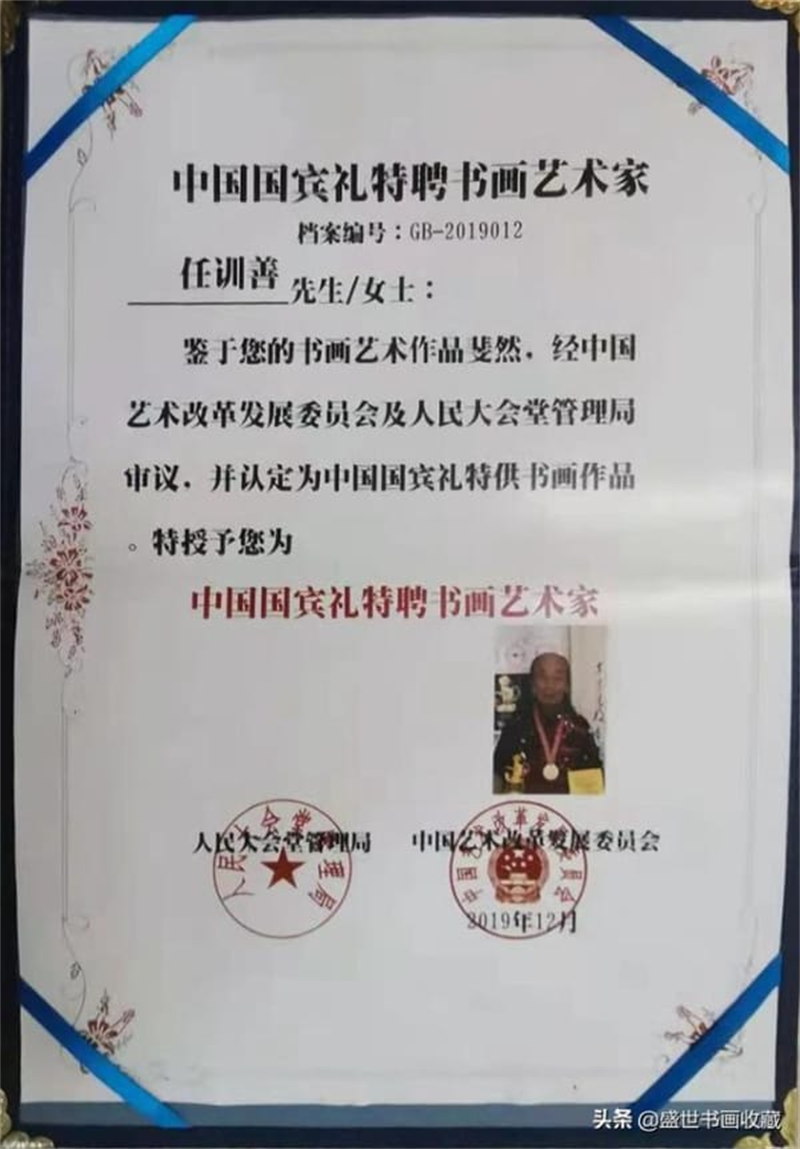 中国国宾礼特聘书画艺术家
档案编号：GB-2019012
任训善 先生/女士：
鉴于您的书画艺术作品斐然，经中国
艺术改革发展委员会及人民大会堂管理局
审议，并认定为中国国宾礼特供书画作品
。特授予您为
中国国宾礼特聘书画艺术家
人民大会堂管理局
中国艺术改革发展委员会
人民大会堂管理局
中国艺术改革发展委员会
2019年12月
头条 @盛世书画收藏